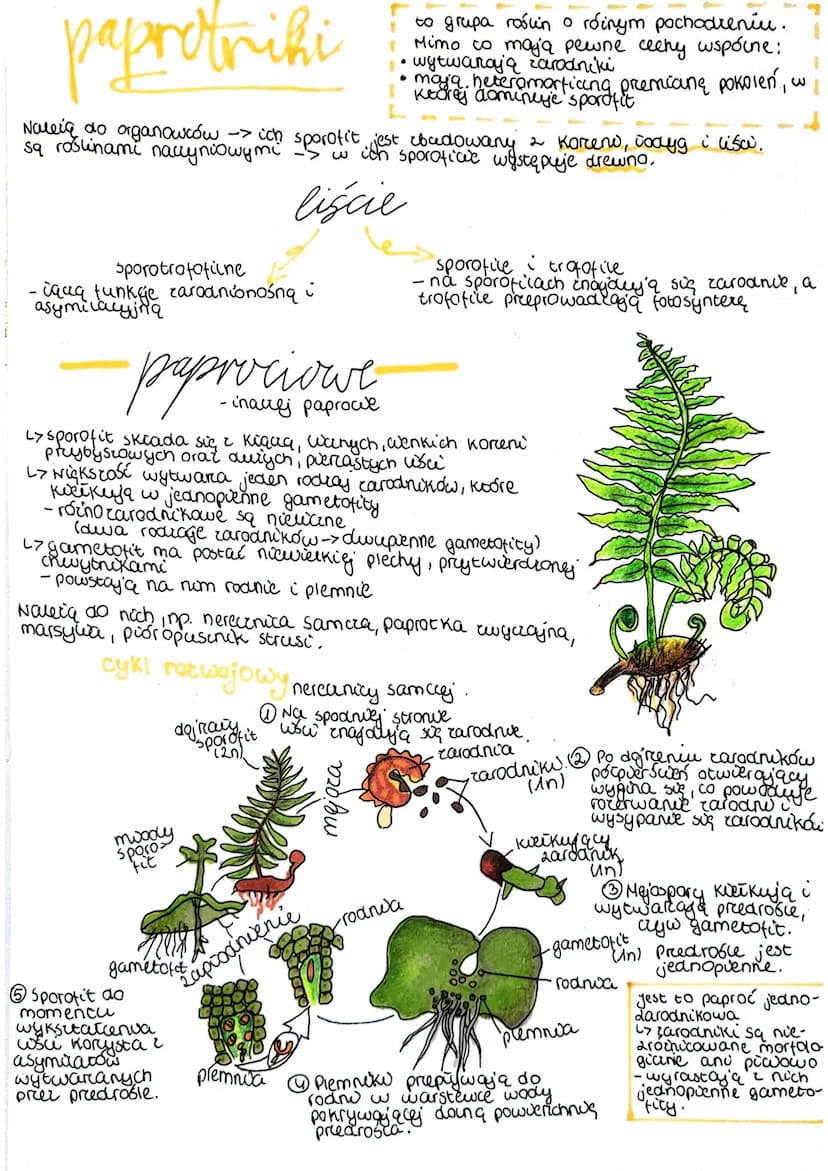 paprotniki
to grupa roślin o różnym pochodzeniu.
Mimo to mają pewne cechy wspólne:
• wytwarzają zarodniki
• mają heteromorficzną przemianę pokoleń, w
której dominuje sporofit
Należą do organowców -> ich sporofit jest zbudowany z korzeni, łodyg i liści.
są roślinami naczyniowymi -> w ich sporoficie występuje drewno.
liście
sporotrofofilne
- łączą funkcję zarodnionośną i
asymilacyjną
sporofile i trofofile
- na sporofilach znajdują się zarodnie, a
trofofile przeprowadzają fotosyntezę
paprociowe
- inaczej paprocie
↳ sporofit składa się z kłącza, licznych, cienkich korzeni
przybyszowych oraz dużych, pierzastych liści
↳ większość wytwarza jeden rodzaj zarodników, które
kiełkują w jednopienne gametofity
- różnozarodnikowe są nieliczne
(dwa rodzaje zarodników -> dwupienne gametofity)
↳ gametofit ma postać niewielkiej plechy, przytwierdzonej
chwytnikami
- powstają na nim rodnie i plemnie
Należą do nich, np. nerecznica samcza, paprotka zwyczajna,
marsylia, pióropusznik strusi.
cykl rozwojowy
nerecznicy samczej.
① Na spodniej stronie
liści znajdują się zarodnie.
dojrzały
sporofit
(2n)
mejoza
zarodnia
zarodniki
(1n)
② Po dojrzeniu zarodników
półpierścień otwierający
wygina się, co powoduje
rozerwanie zarodni i
wysypanie się zarodników
młody
sporo-
fit
kiełkujący
zarodnik
(1n)
③ Mejospory kiełkują i
wytwarzają przedrośle,
czyli gametofit.
Przedrośle jest
jednopienne.
zapłodnienie
rodnia
gametofit
gametofit
(1n)
rodnia
plemnia
⑤ Sporofit do
momentu
wykształcenia
liści korzysta z
asymilatów
wytwarzanych
przez przedrośle.
plemnia
④ Plemniki przepływają do
rodni w warstewce wody
pokrywającej dolną powierzchnię
przedrośla.
jest to paproć jedno-
zarodnikowa
↳ zarodniki są nie-
zróżnicowane morfolo-
gicznie ani płciowo
- wyrastają z nich
jednopienne gameto-
fity.